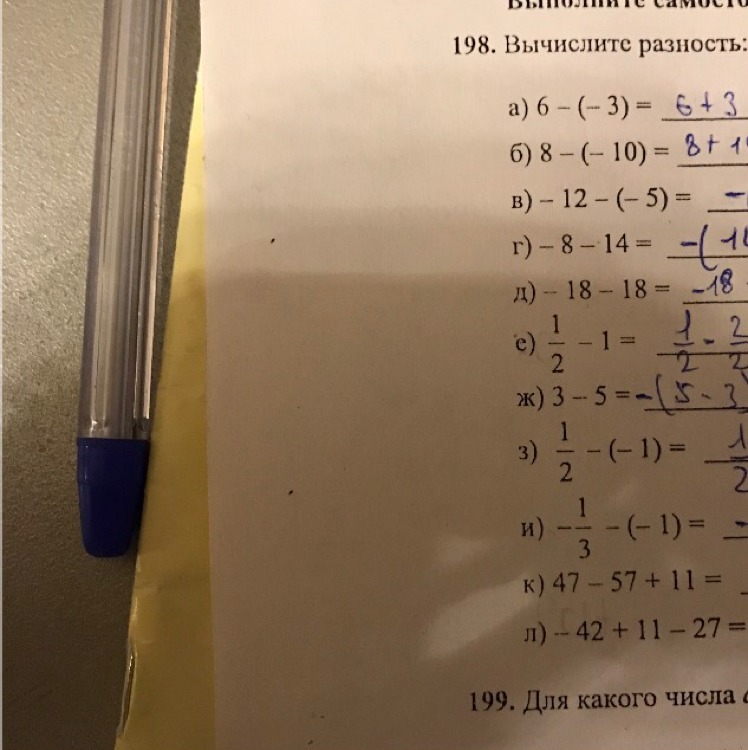 Выполните самосто
198. Вычислите разность:
а) 6 – (– 3) = 6 + 3
б) 8 – (– 10) = 8 + 1
в) – 12 – (– 5) = -
г) – 8 – 14 = -(14
д) – 18 – 18 = -18
е) 1/2 – 1 = 1/2 - 2/2
ж) 3 – 5 = -(5 - 3)
з) 1/2 – (– 1) = 1/2
и) – 1/3 – (– 1) = -
к) 47 – 57 + 11 =
л) – 42 + 11 – 27 =
199. Для какого числа